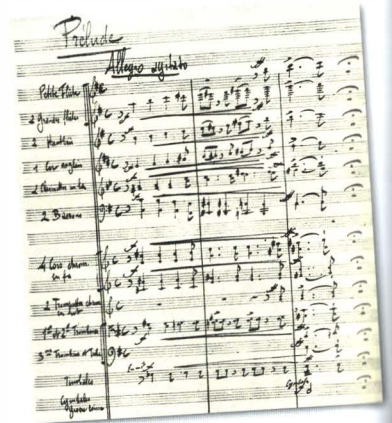 Prélude
Allegro agitato
Petite Flûte
2 Grandes Flûtes
2 Hautbois
1 Cor anglais
2 Clarinettes en la
2 Bassons
4 Cors chrom.
en fa
2 Trompettes chrom.
1er et 2e Trombones
3me Trombone et Tuba
Timbales
Cymbales